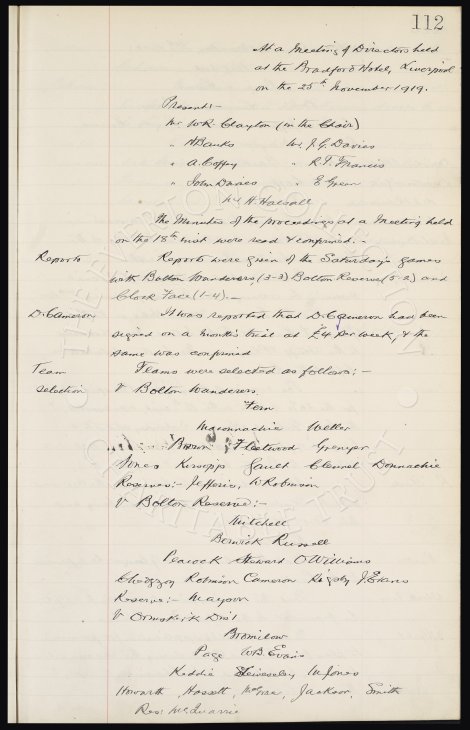 112
At a Meeting of Directors held
at the Bradford Hotel, Liverpool
on the 25th November 1919.
Present:-
Mr W.R. Clayton (in the Chair)
" A Banks Mr. J.G. Davies
" A. Coffey " R.T. Francis
" John Davies " E Green
Mr H. Halsall
The Minutes of the proceedings at a Meeting held
on the 18th inst were read & confirmed.-
Reports Reports were given of the Saturday's games
with Bolton Wanderers (3-3) Bolton Reserve (5-2) and
Clock Face (1-4).-
D. Cameron It was reported that D. Cameron had been
signed on a month's trial at £4 per week, & the
same was confirmed
Team Teams were selected as follows:-
selection V Bolton Wanderers
Fern
Maconnachie Weller
Brown Fleetwood Grenyer
Jones Kirsopp Gault Clennel Donnachie
Reserves:- Jefferis, W Robinson
V Bolton Reserve:-
Mitchell
Berwick Russell
Peacock Stewart O Williams
Chedgzoy Robinson Cameron Rigsby J. Evans
Reserve:- Mayson
V Ormskirk Dist
Bromilow
Page W.B. Evans
Keddie W Jones
Howarth, Hassell, Jackson, Smith
Res: McQuarrie